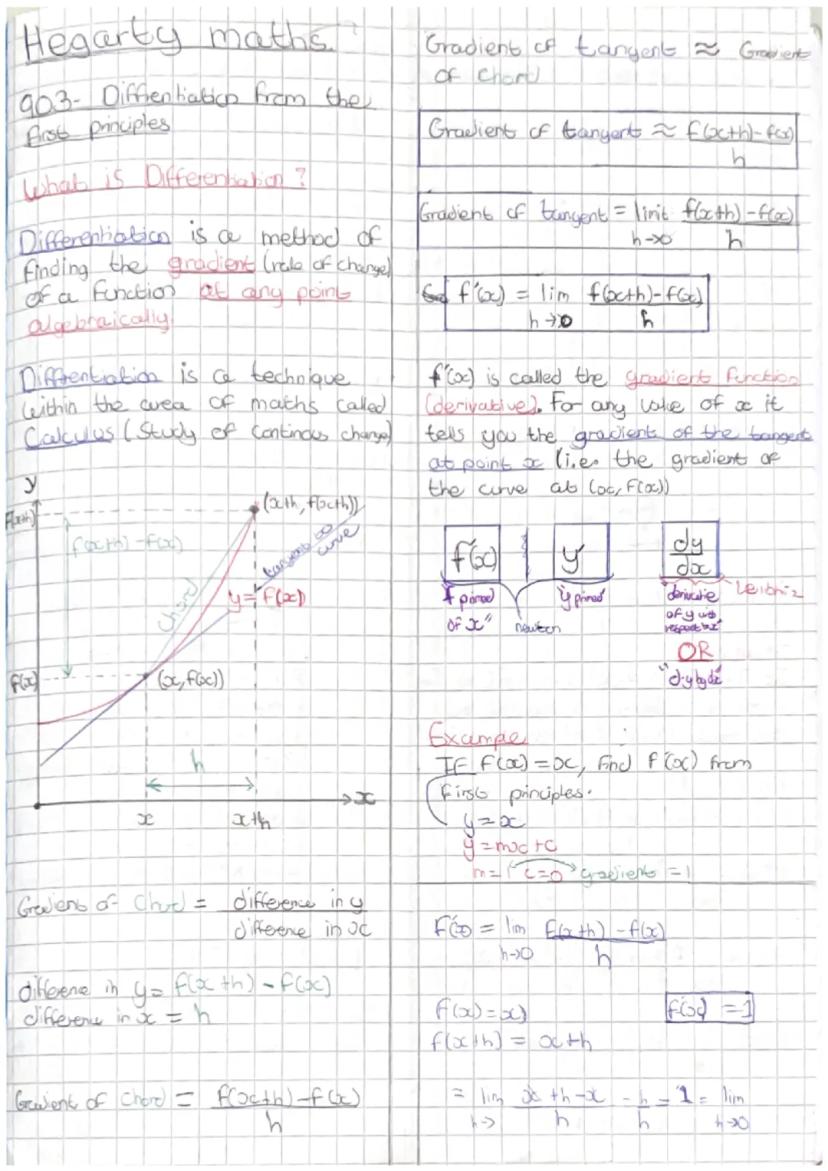 Hegarty maths.
903- Diffientiation from the
first principles
What is Differentiation?
Differentiation is a method of
finding the gradient (rate of change)
of a function at any point
algebraically.
Diffrentiation is a technique
within the area of maths called
Calculus (Study of continous change)
y
f(x+h)
(x+h, f(x+h))
f(x+h)-f(x)
tangent to
curve
chord
y=f(x)
f(x)
(x, f(x))
h
x
x
x+h
Gradient of Chord = difference in y
difference in x
difference in y= f(x+h) - f(x)
difference in x = h
Gradient of Chord = f(x+h)-f(x)
h
Gradient of tangent ≈ Gradient
of Chord
Gradient of tangent ≈ f(x+h)-f(x)
h
Gradient of tangent = limit f(x+h)-f(x)
h→0 h
f'(x) = lim f(x+h)-f(x)
h→0 h
f'(x) is called the gradient function
(derivative). For any value of x it
tells you the gradient of the tangent
at point x (i.e. the gradient of
the curve at (x, f(x))
f'(x) y' dy
dx
"f primed
of x"
newton
"y primed"
"derivative
of y with
respect to x"
Leibniz
OR
"d-y by dx"
Example
If f(x) = x, find f'(x) from
first principles.
y = x
y = mx + c
m=1 c=0 gradient = 1
f'(x) = lim f(x+h) - f(x)
h→0 h
f(x) = x
f'(x) = 1
f(x+h) = x+h
= lim x + h - x = h = 1 = lim
h→ h h h→0